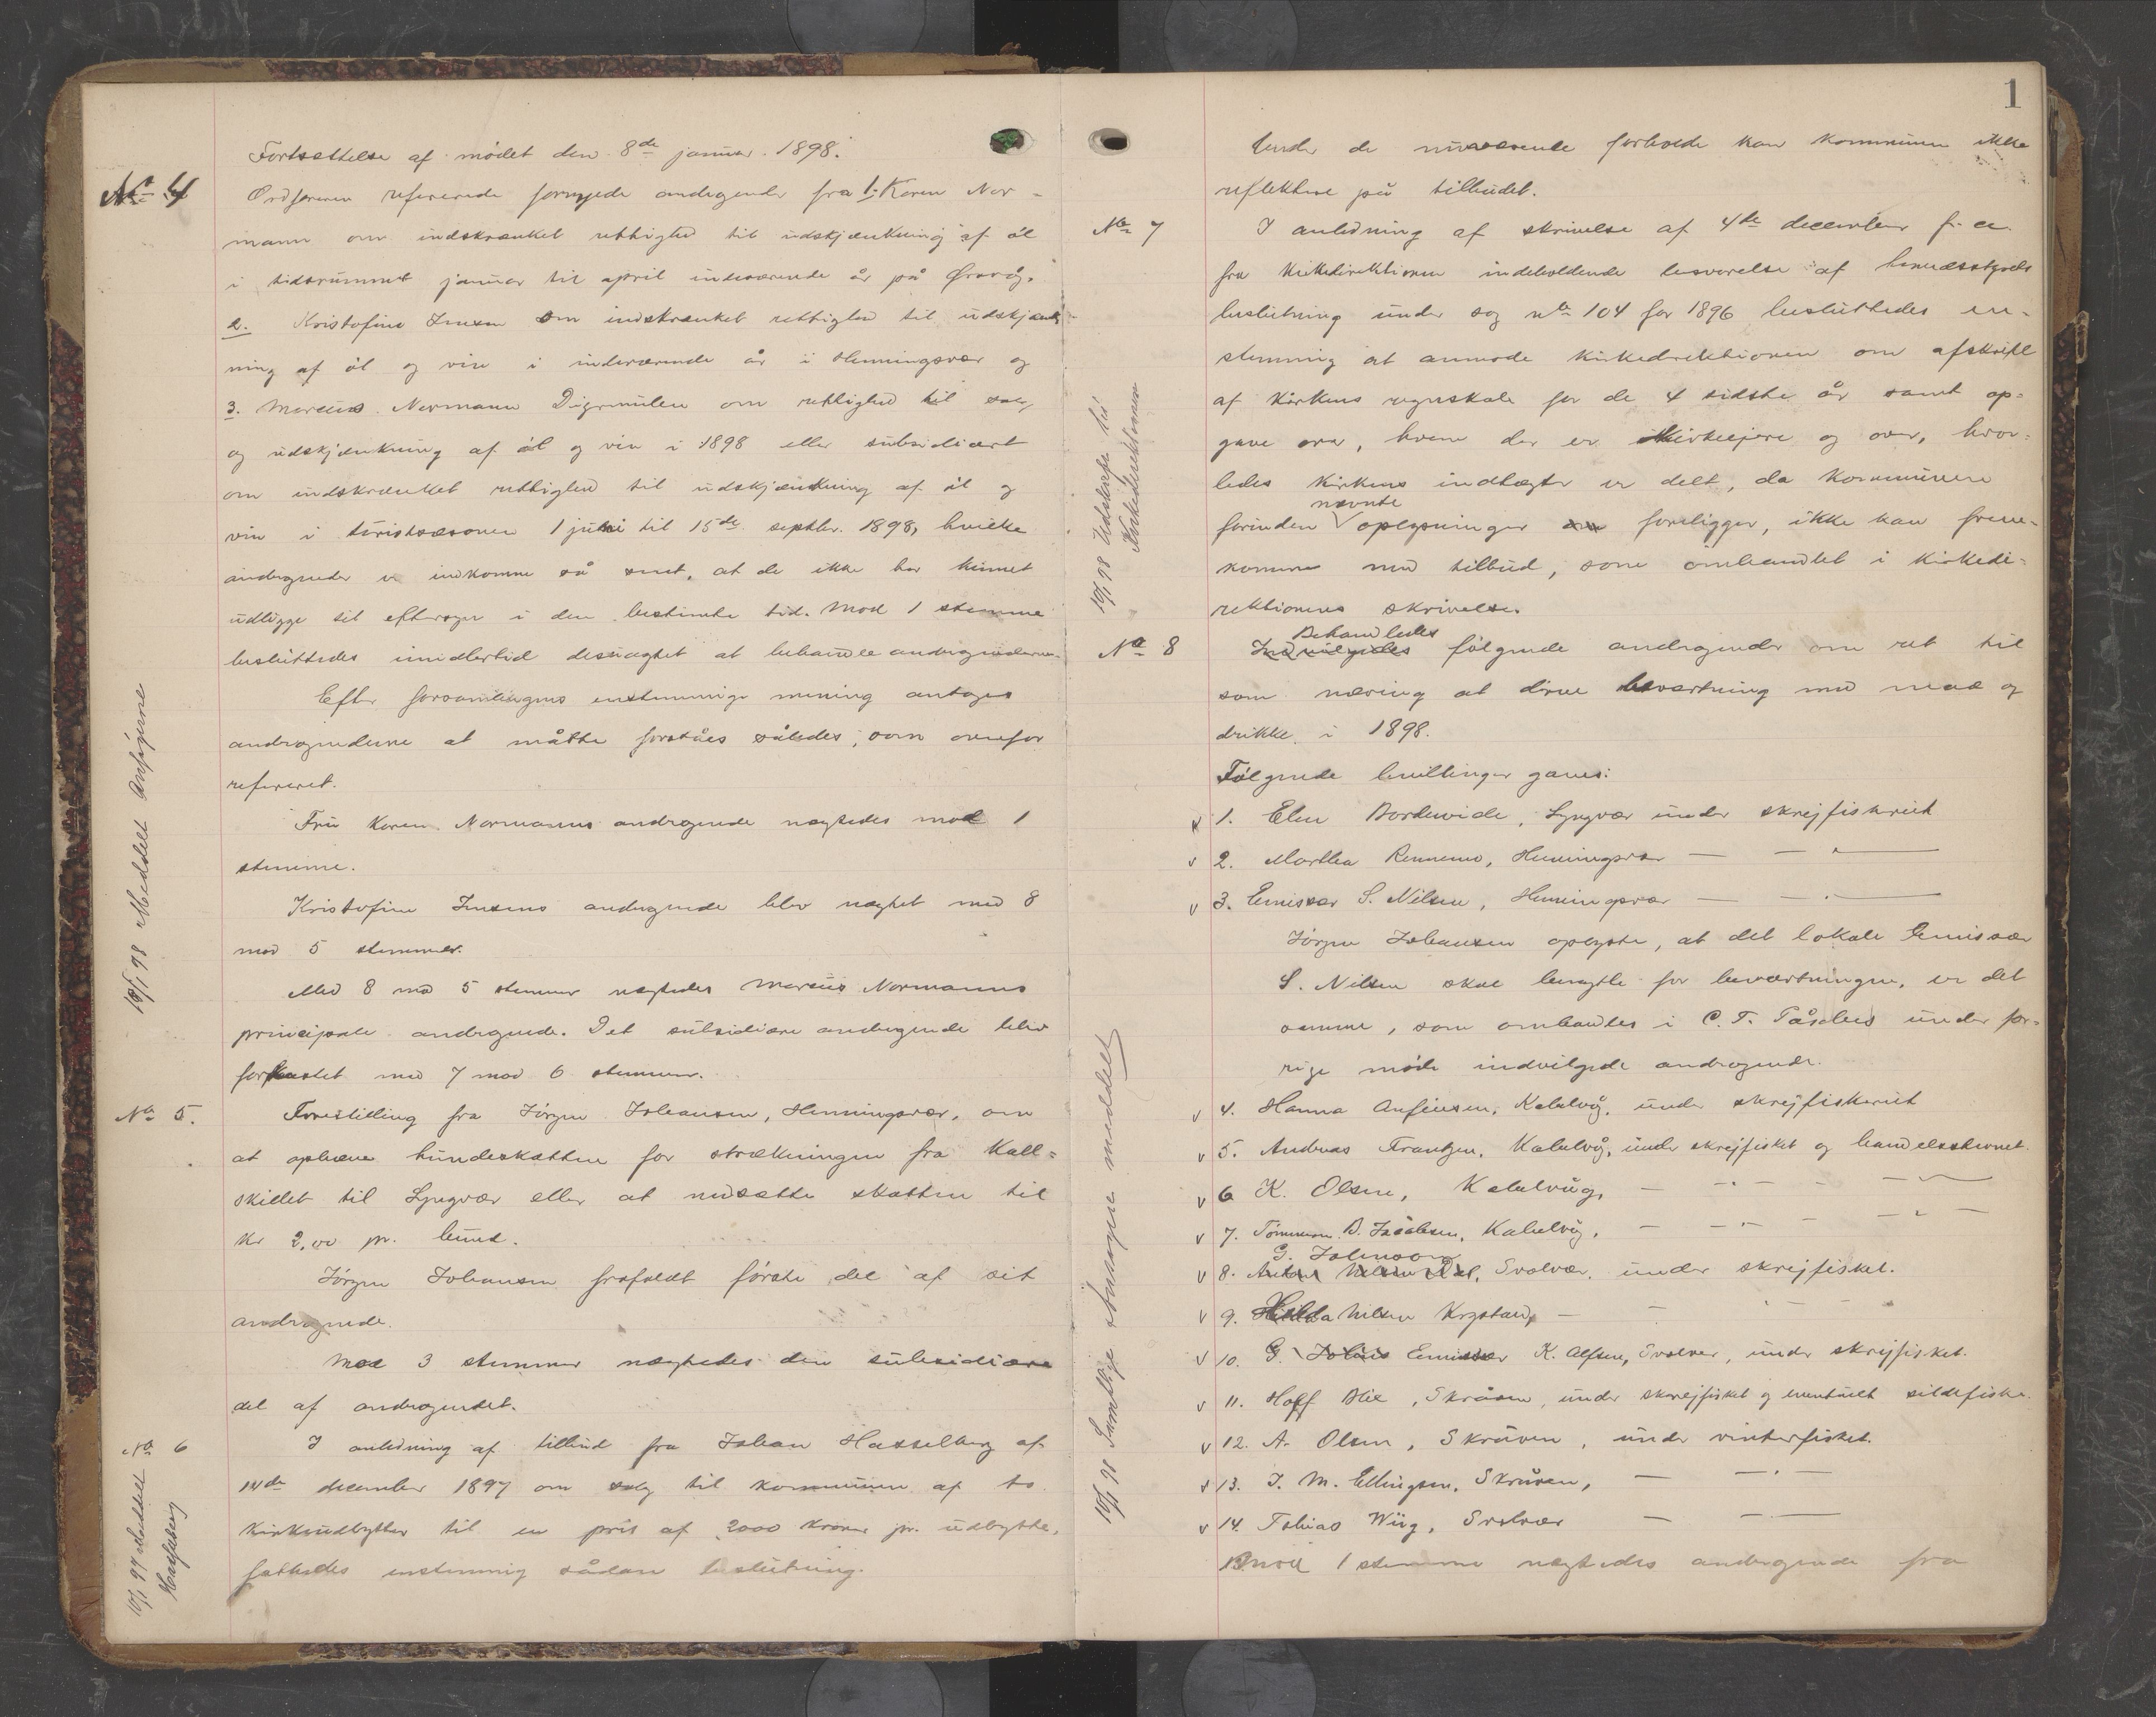 Fortsættelse af mødet den 8de januar 1898.
No 4
Ordføreren refererede fornyede andragender fra 1. Karen Nor-
mann om indskrænket rettighed til udskjænkning af øl
i tidsrummet januar til april indeværende år på Ørsvåg.
2. Kristofine Jensen om indskrænket rettighed til udskjænk-
ning af øl og vin i indeværende år i Henningsvær og
3. Marcus Normann Digermulen om rettighed til salg
og udskjænkning af øl og vin i 1898 eller subsidiært
om indskrænket rettighed til udskjænkning af øl og
vin i turistsæsonen 1 juni til 15de septbr. 1898, hvilke
andragender er indkomne så sent, at de ikke har kunnet
udligge til eftersyn i den bestemte tid. Mod 1 stemme
besluttedes imidlertid desuagtet at behandle andragenderne.
Efter forsamlingens enstemmige mening antages
andragenderne at måtte forståes således, som ovenfor
refereret.
Fru Karen Normanns andragende nægtedes mod 1
stemme.
Kristofine Jensens andragende blev nægtet med 8
mod 5 stemmer.
Med 8 mod 5 stemmer nægtedes Marcus Normanns
principale andragende. Det subsidiære andragende blev
forkastet med 7 mod 6 stemmer.
10/1 98 Meddelt Ansøgerne
No 5.
Forestilling fra Jørgen Johansen, Henningsvær, om
at ophæve hundeskatten for strækningen fra Kall-
skillet til Lyngvær eller at nedsætte skatten til
kr 2,00 pr. hund.
Jørgen Johansen frafaldt første del af sit
andragende.
Mod 3 stemmer nægtedes den subsidiære
del af andragendet.
No 6
I anledning af tilbud fra Johan Hasselberg af
14de december 1897 om salg til kommunen af to
kirkeudbytter til en pris af 2000 kroner pr. udbytte,
fattedes enstemmig sådan beslutning.
10/1 97 Meddelt
Hasselberg
1
Under de nuværende forholde kan kommunen ikke
reflektere på tilbudet.
No 7
I anledning af skrivelse af 4de december f. a.
fra kirkedirektionen indeholdende besvarelse af herredsstyrets
beslutning under sag nr 104 for 1896 besluttedes en-
stemmig at anmode kirkedirektionen om afskrift
af kirkens regnskab for de 4 sidste år samt op-
gave over, hvem der er kirkeejere og over, hvor-
ledes kirkens indtægter er delt, da kommunen
nævnte
forinden oplysninger foreligger, ikke kan frem-
komme med tilbud, som omhandlet i kirkedi-
rektionens skrivelse.
10/1 98 Udskrift til
Kirkedirektionen
No 8
Behandledes
Indvilgedes følgende andragender om ret til
som næring at drive beværtning med mad og
drikke i 1898.
Følgende bevillinger gaves:
v 1. Elen Bordevick, Lyngvær under skrejfiskeriet
v 2. Martha Rennemo, Henningsvær — — " —
v 3. Emissær S. Nilsen, Henningsvær — — " —
Jørgen Johansen oplyste, at det lokale Emissær
S. Nilsen skal benytte for beværtningen, er det
samme, som omhandles i C. F. under for-
rige møde indvilgede andragende.
v 4. Hanna Anfinsen, Kabelvåg, under skrejfiskeriet
v 5. Andreas Frantzen, Kabelvåg, under skrejfisket og handelsstevnet.
v 6 K. Olsen, Kabelvåg, — — " — — " —
v 7. Tømmerm. B. Jakobsen, Kabelvåg, — — " — — " —
G. Johnson
v 8. Anton Nilsen Dal, Svolvær, under skrejfisket.
v 9. Hilda Nilsen Krystad, — — " — —
v 10. G. Johns Emissær K. Alfsen, Svolvær, under skrejfisket.
v 11. Hoff Mix, Skråven, under skrejfisket og eventuelt sildefiske.
v 12. A. Olsen, Skråven, under vinterfisket.
v 13. J. M. Ellingsen, Skråven, — — " —
v 14. Tobias Wiig, Svolvær — — " —
Mod 1 stemme nægtedes andragende fra
10/1 98 Samtlige ansøgere meddelt